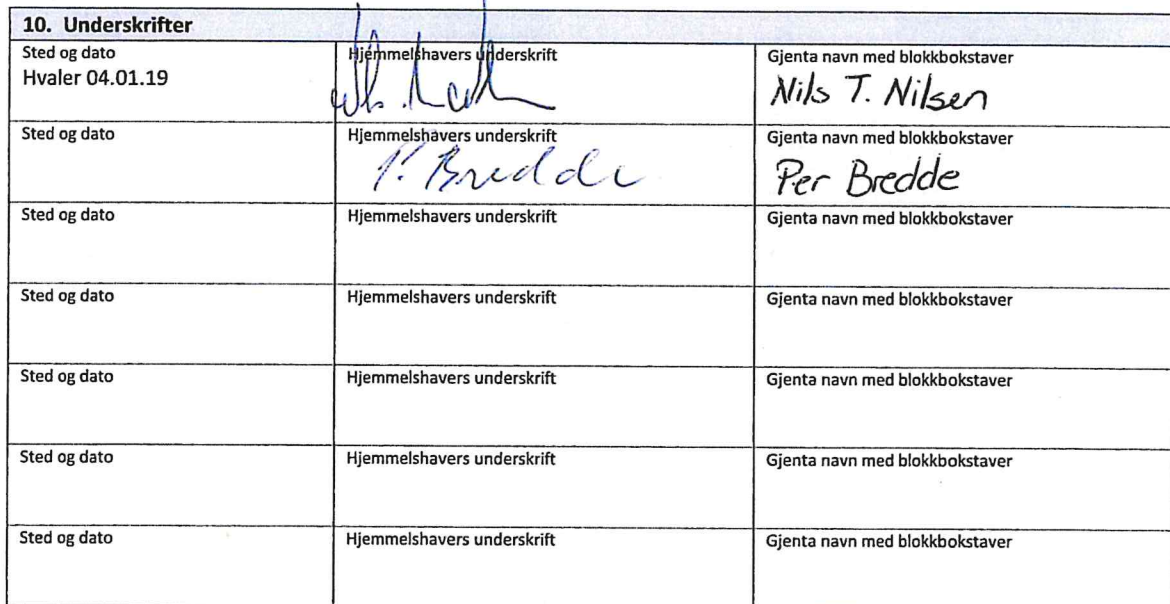 10. Underskrifter
Sted og dato
Hvaler 04.01.19
Hjemmelshavers underskrift
Gjenta navn med blokkbokstaver
Nils T. Nilsen
Sted og dato
Hjemmelshavers underskrift
P. Bredde
Gjenta navn med blokkbokstaver
Per Bredde
Sted og dato
Hjemmelshavers underskrift
Gjenta navn med blokkbokstaver
Sted og dato
Hjemmelshavers underskrift
Gjenta navn med blokkbokstaver
Sted og dato
Hjemmelshavers underskrift
Gjenta navn med blokkbokstaver
Sted og dato
Hjemmelshavers underskrift
Gjenta navn med blokkbokstaver
Sted og dato
Hjemmelshavers underskrift
Gjenta navn med blokkbokstaver